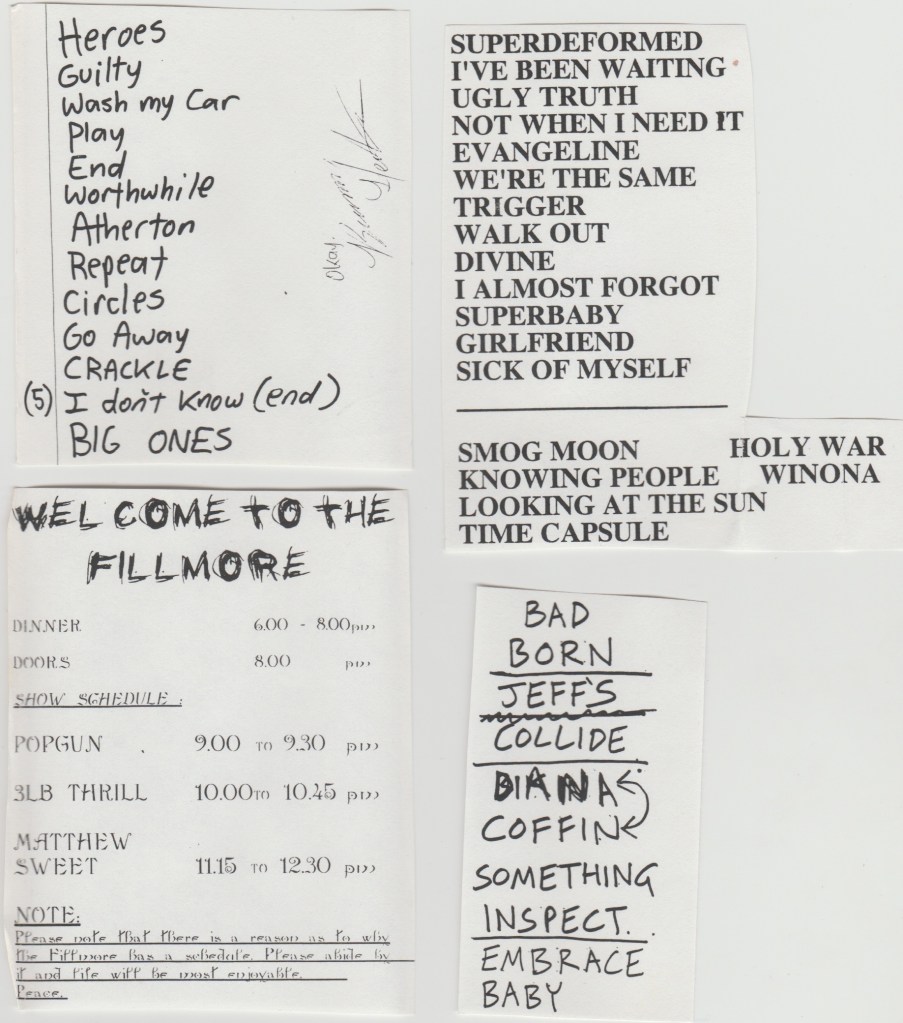 Heroes
Guilty
Wash my Car
Play
End
Worthwhile
Atherton
Repeat
Circles
Go Away
CRACKLE
(5) I don't know (end)
BIG ONES
Okay.
SUPERDEFORMED
I'VE BEEN WAITING
UGLY TRUTH
NOT WHEN I NEED IT
EVANGELINE
WE'RE THE SAME
TRIGGER
WALK OUT
DIVINE
I ALMOST FORGOT
SUPERBABY
GIRLFRIEND
SICK OF MYSELF
SMOG MOON HOLY WAR
KNOWING PEOPLE WINONA
LOOKING AT THE SUN
TIME CAPSULE
WELCOME TO THE
FILLMORE
DINNER 6.00 - 8.00pm
DOORS 8.00 pm
SHOW SCHEDULE :
POPGUN . 9.00 TO 9.30 pm
3LB THRILL 10.00 TO 10.45 pm
MATTHEW
SWEET 11.15 TO 12.30 pm
NOTE:
Please note that there is a reason as to why
the Fillmore has a schedule. Please abide by
it and life will be most enjoyable.
Peace.
BAD
BORN
JEFF'S
COLLIDE
DIANA
COFFIN
SOMETHING
INSPECT.
EMBRACE
BABY